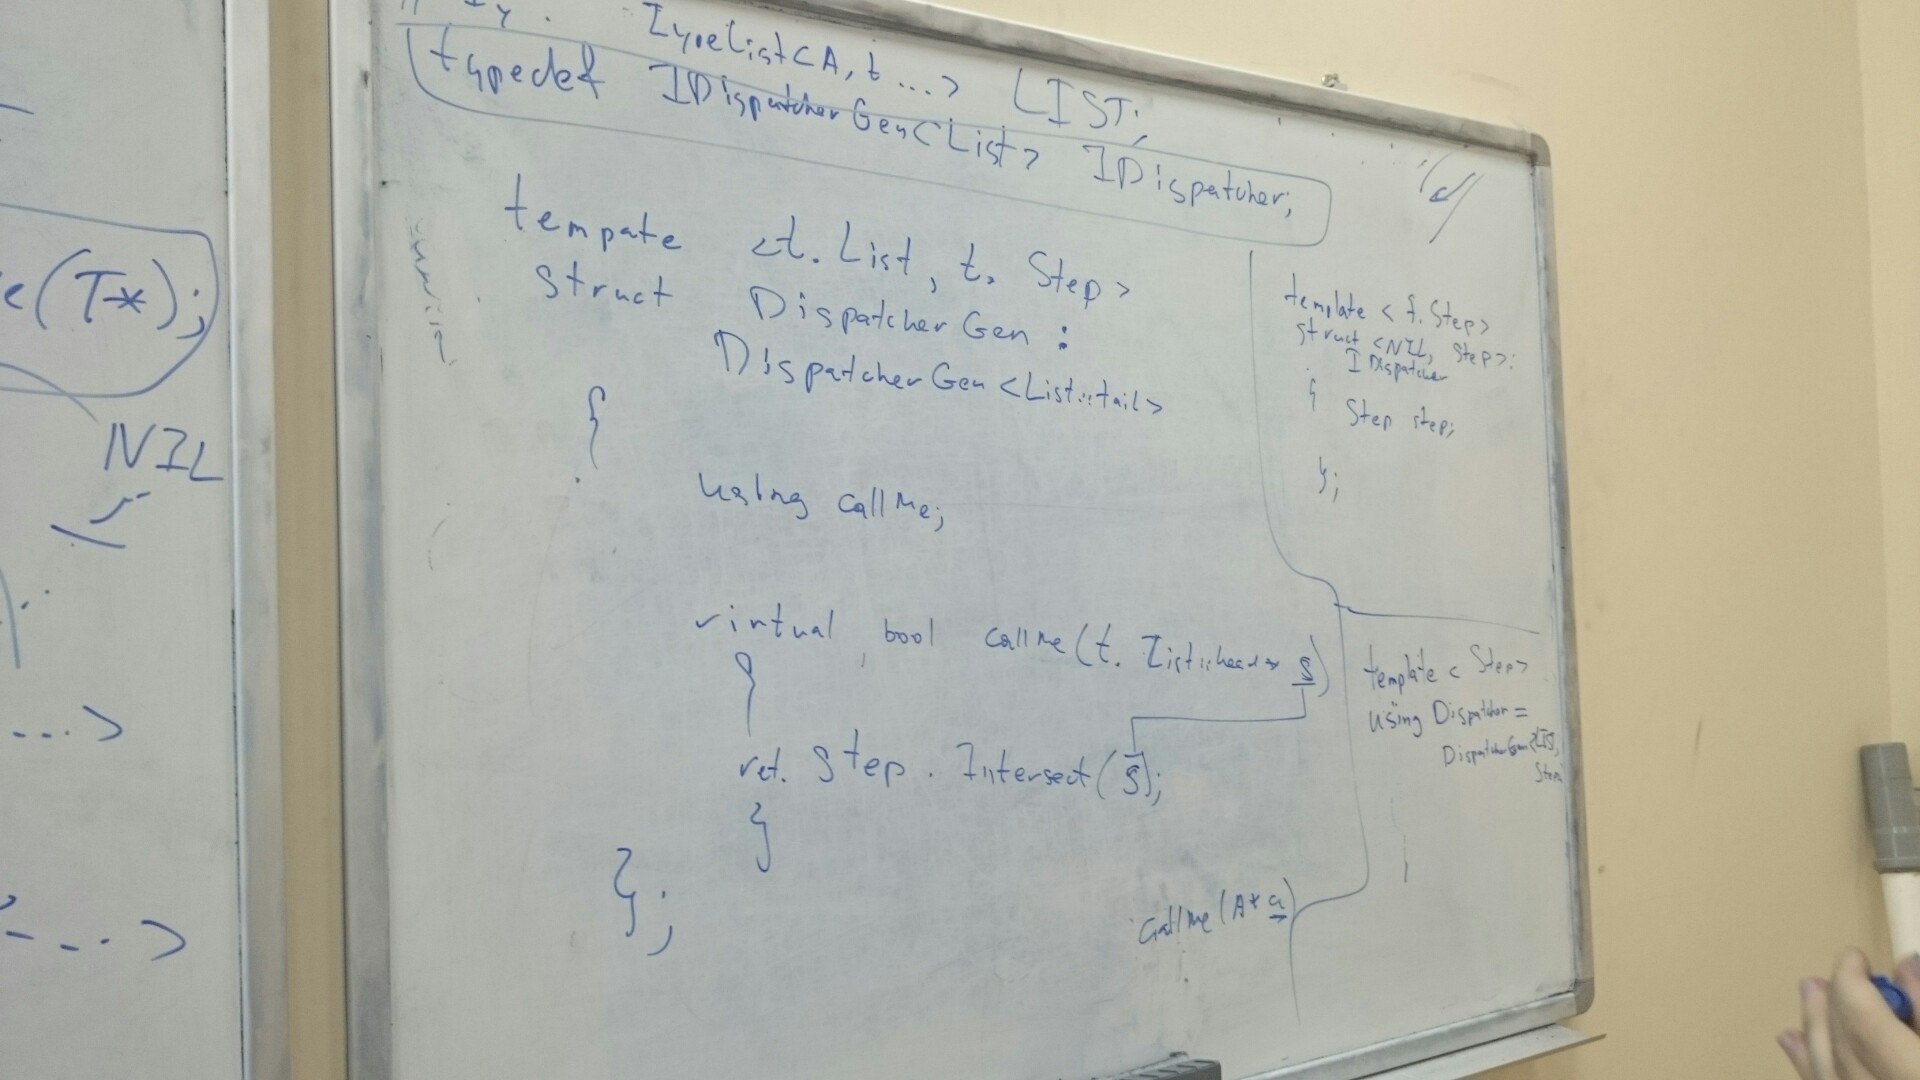 TypeList<A, t...> LIST;
typedef IDispatcherGen<List> IDispatcher;
tempate <t. List, t. Step>
struct DispatcherGen :
DispatcherGen <List::tail>
{
using callMe;
virtual bool callMe(t. List::head* s)
{
ret. Step. Intersect(s);
}
};
callMe(A* a)
template < t. Step>
struct <NIL, Step>:
IDispatcher
{
Step step;
};
template < Step>
using Dispatcher =
DispatcherGen<LIST,
Step>
(T*);
NIL
...>
---.>